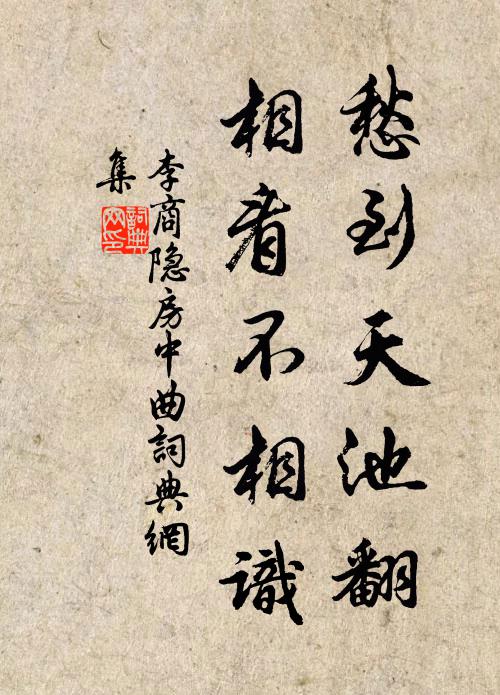 愁到天池翻
相看不相識
李商隐房中曲詞典網
集
詞典网印